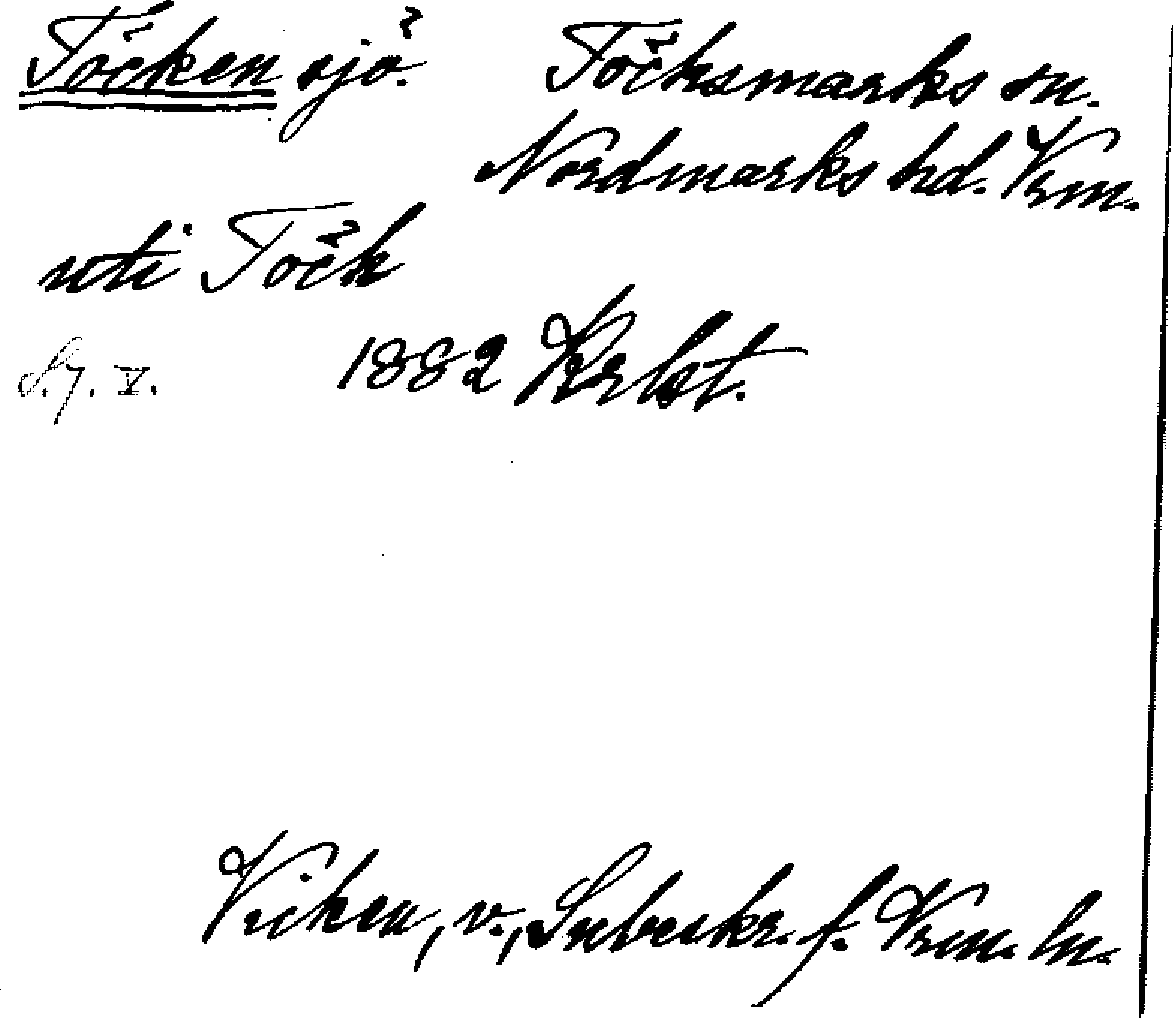 Töcken sjö.
Töcksmarks sn.
Nordmarks hd. Vrm.
uti Töck
S.j. V.
1882 Krbst.
Vicken, v., Subeskr. f. Vrm. ln.